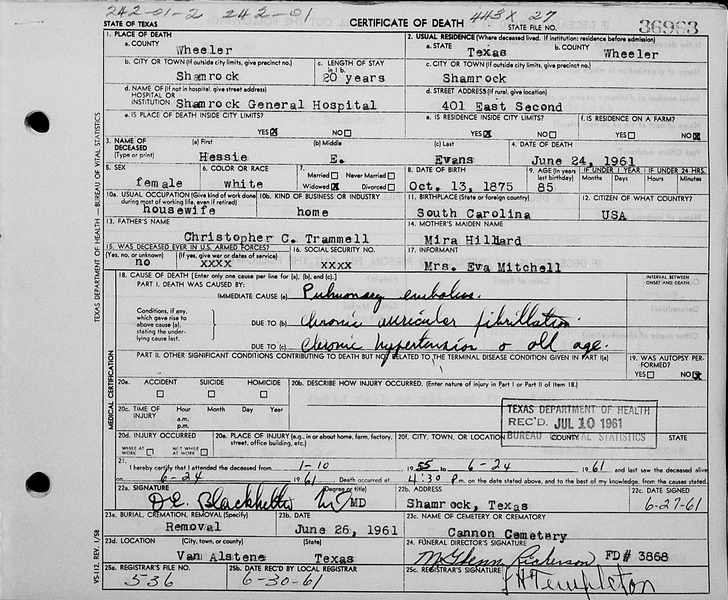 242-01-2 242-01 443X 27
STATE OF TEXAS CERTIFICATE OF DEATH STATE FILE NO. 36963
1. PLACE OF DEATH 2. USUAL RESIDENCE (Where deceased lived. If institution: residence before admission)
a. COUNTY a. STATE b. COUNTY
Wheeler Texas Wheeler
b. CITY OR TOWN (If outside city limits, give precinct no.) c. LENGTH OF STAY in 1 b. c. CITY OR TOWN (If outside city limits, give precinct no.)
Shamrock 20 years Shamrock
d. NAME OF (If not in hospital, give street address) d. STREET ADDRESS (If rural, give location)
HOSPITAL OR
INSTITUTION Shamrock General Hospital 401 East Second
e. IS PLACE OF DEATH INSIDE CITY LIMITS? e. IS RESIDENCE INSIDE CITY LIMITS? f. IS RESIDENCE ON A FARM?
YES X NO YES X NO YES NO X
3. NAME OF DECEASED (Type or print) (a) First (b) Middle (c) Last 4. DATE OF DEATH
Hessie E. Evans June 24, 1961
5. SEX 6. COLOR OR RACE 7. Married Never Married Widowed X Divorced 8. DATE OF BIRTH 9. AGE (In years last birthday) IF UNDER 1 YEAR IF UNDER 24 HRS.
Months Days Hours Minutes
female white Oct. 13, 1875 85
10a. USUAL OCCUPATION (Give kind of work done during most of working life, even if retired) 10b. KIND OF BUSINESS OR INDUSTRY 11. BIRTHPLACE (State or foreign country) 12. CITIZEN OF WHAT COUNTRY?
housewife home South Carolina USA
13. FATHER'S NAME 14. MOTHER'S MAIDEN NAME
Christopher C. Trammell Mira Hillard
15. WAS DECEASED EVER IN U.S. ARMED FORCES? 16. SOCIAL SECURITY NO. 17. INFORMANT
(Yes, no, or unknown) (If yes, give war or dates of service)
no xxxx xxxx Mrs. Eva Mitchell
18. CAUSE OF DEATH [Enter only one cause per line for (a), (b), and (c).] INTERVAL BETWEEN ONSET AND DEATH
PART I. DEATH WAS CAUSED BY:
IMMEDIATE CAUSE (a) Pulmonary embolus.
Conditions, if any, which gave rise to above cause (a), stating the underlying cause last.
DUE TO (b) Chronic auricular fibrillation.
DUE TO (c) Chronic hypertension & old age.
PART II. OTHER SIGNIFICANT CONDITIONS CONTRIBUTING TO DEATH BUT NOT RELATED TO THE TERMINAL DISEASE CONDITION GIVEN IN PART I(a) 19. WAS AUTOPSY PERFORMED?
YES NO X
20a. ACCIDENT SUICIDE HOMICIDE 20b. DESCRIBE HOW INJURY OCCURRED. (Enter nature of injury in Part I or Part II of Item 18.)
20c. TIME OF INJURY Hour a.m. p.m. Month Day Year
TEXAS DEPARTMENT OF HEALTH
REC'D. JUL 10 1961
BUREAU STATISTICS
20d. INJURY OCCURRED 20e. PLACE OF INJURY (e.g., in or about home, farm, factory, street, office building, etc.) 20f. CITY, TOWN, OR LOCATION COUNTY STATE
WHILE AT WORK NOT WHILE AT WORK
21. I hereby certify that I attended the deceased from 1-10 1955 to 6-24 1961 and last saw the deceased alive
on 6-24 1961 Death occurred at 4:30 P.m. on the date stated above, and to the best of my knowledge, from the causes stated.
22a. SIGNATURE (Degree or title) 22b. ADDRESS 22c. DATE SIGNED
MD Shamrock, Texas 6-27-61
23a. BURIAL, CREMATION, REMOVAL (Specify) 23b. DATE 23c. NAME OF CEMETERY OR CREMATORY
Removal June 26, 1961 Cannon Cemetery
23d. LOCATION (City, town, or county) (State) 24. FUNERAL DIRECTOR'S SIGNATURE
Van Alstene Texas FD# 3868
25a. REGISTRAR'S FILE NO. 25b. DATE REC'D BY LOCAL REGISTRAR 25c. REGISTRAR'S SIGNATURE
536 6-30-61 Templeton
TEXAS DEPARTMENT OF HEALTH — BUREAU OF VITAL STATISTICS
MEDICAL CERTIFICATION
VS-112, REV. 1/58